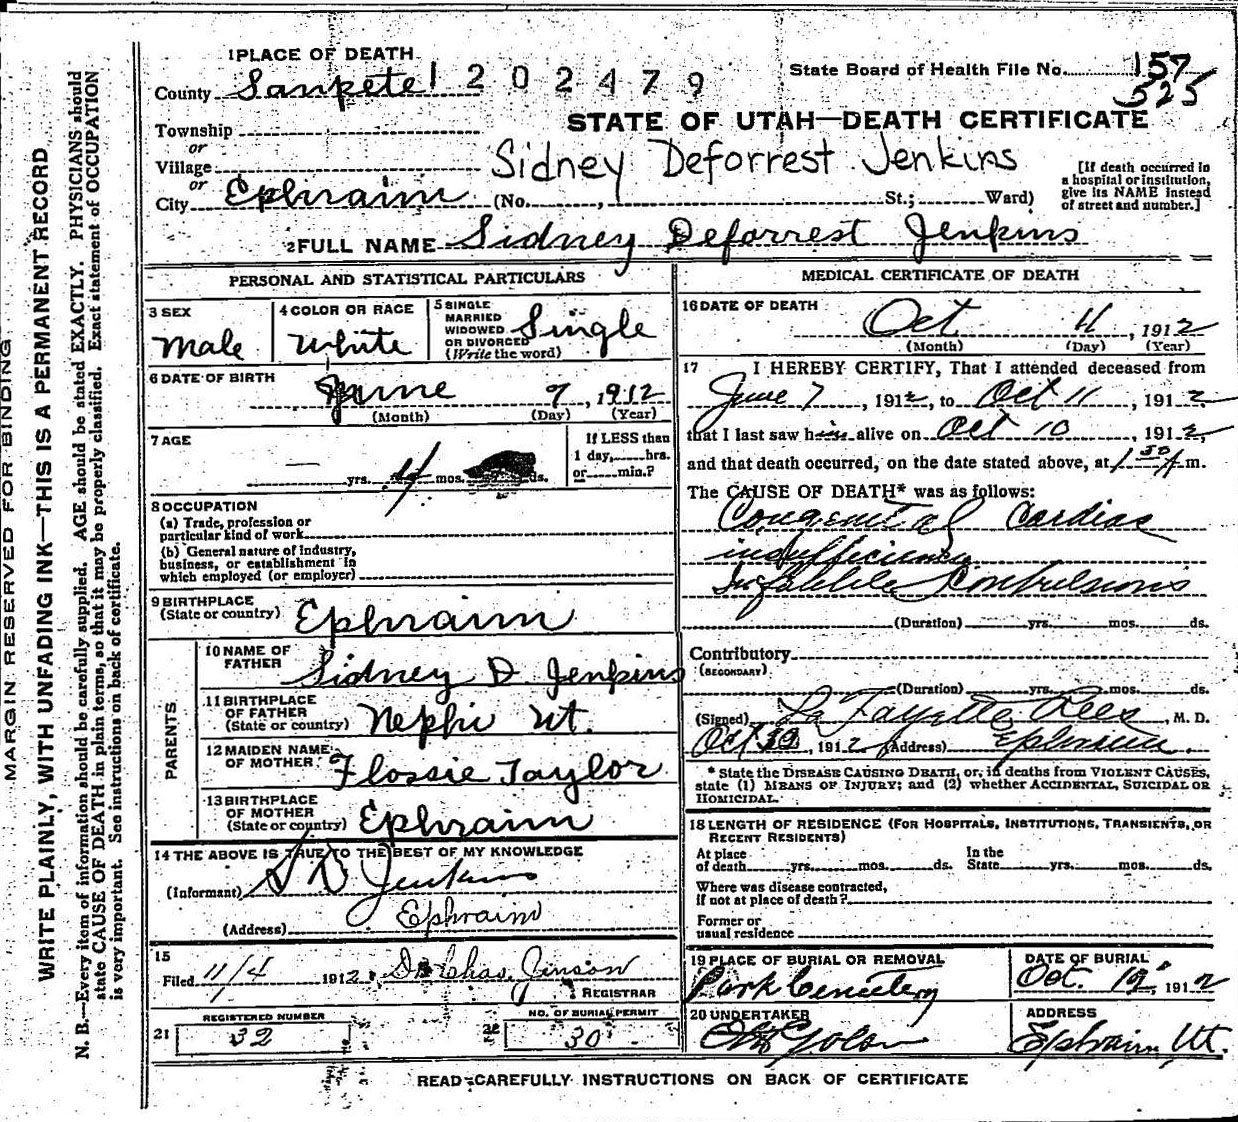 MARGIN RESERVED FOR BINDING
WRITE PLAINLY, WITH UNFADING INK—THIS IS A PERMANENT RECORD
N. B.—Every item of information should be carefully supplied. AGE should be stated EXACTLY. PHYSICIANS should
state CAUSE OF DEATH in plain terms, so that it may be properly classified. Exact statement of OCCUPATION
is very important. See instructions on back of certificate.
1 PLACE OF DEATH
County Sanpete 1 202479
State Board of Health File No. 157
525
STATE OF UTAH—DEATH CERTIFICATE
Township
or
Village
Sidney Deforrest Jenkins
or
City Ephraim (No. , St.; Ward)
[If death occurred in
a hospital or institution,
give its NAME instead
of street and number.]
2 FULL NAME Sidney Deforrest Jenkins
PERSONAL AND STATISTICAL PARTICULARS
3 SEX
Male
4 COLOR OR RACE
White
5 SINGLE
MARRIED
WIDOWED
OR DIVORCED
(Write the word)
Single
6 DATE OF BIRTH
June 7, 1912
(Month) (Day) (Year)
7 AGE
— yrs. 4 mos. ds.
If LESS than
1 day, hrs.
or min.?
8 OCCUPATION
(a) Trade, profession or
particular kind of work
(b) General nature of industry,
business, or establishment in
which employed (or employer)
9 BIRTHPLACE
(State or country) Ephraim
PARENTS
10 NAME OF
FATHER Sidney D. Jenkins
11 BIRTHPLACE
OF FATHER
(State or country) Nephi Ut.
12 MAIDEN NAME
OF MOTHER Flossie Taylor
13 BIRTHPLACE
OF MOTHER
(State or country) Ephraim
14 THE ABOVE IS TRUE TO THE BEST OF MY KNOWLEDGE
(Informant) S D Jenkins
(Address) Ephraim
15
Filed 11/4 1912 Dr Chas. Jenson
REGISTRAR
REGISTERED NUMBER
21 32
NO. OF BURIAL PERMIT
30
MEDICAL CERTIFICATE OF DEATH
16 DATE OF DEATH
Oct 11, 1912
(Month) (Day) (Year)
17 I HEREBY CERTIFY, That I attended deceased from
June 7, 1912, to Oct 11, 1912,
that I last saw him alive on Oct 10, 1912,
and that death occurred, on the date stated above, at 1 30 A m.
The CAUSE OF DEATH* was as follows:
Congenital Cardiac
insufficiency
Infantile Convulsions
(Duration) yrs. mos. ds.
Contributory
(SECONDARY)
(Duration) yrs. mos. ds.
(Signed) La Fayette Rees, M. D.
Oct 1912 (Address) Ephraim.
* State the DISEASE CAUSING DEATH, or, in deaths from VIOLENT CAUSES,
state (1) MEANS OF INJURY; and (2) whether ACCIDENTAL, SUICIDAL OR
HOMICIDAL.
18 LENGTH OF RESIDENCE (FOR HOSPITALS, INSTITUTIONS, TRANSIENTS, OR
RECENT RESIDENTS)
At place
of death yrs. mos. ds.
In the
State yrs. mos. ds.
Where was disease contracted,
if not at place of death?
Former or
usual residence
19 PLACE OF BURIAL OR REMOVAL
Park Cemetery
DATE OF BURIAL
Oct. 12, 1912
20 UNDERTAKER
ADDRESS
Ephraim, Ut.
READ CAREFULLY INSTRUCTIONS ON BACK OF CERTIFICATE